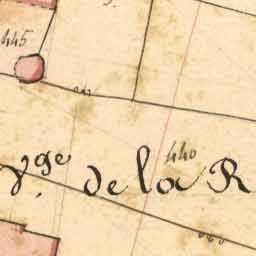 445
440
yge de la R